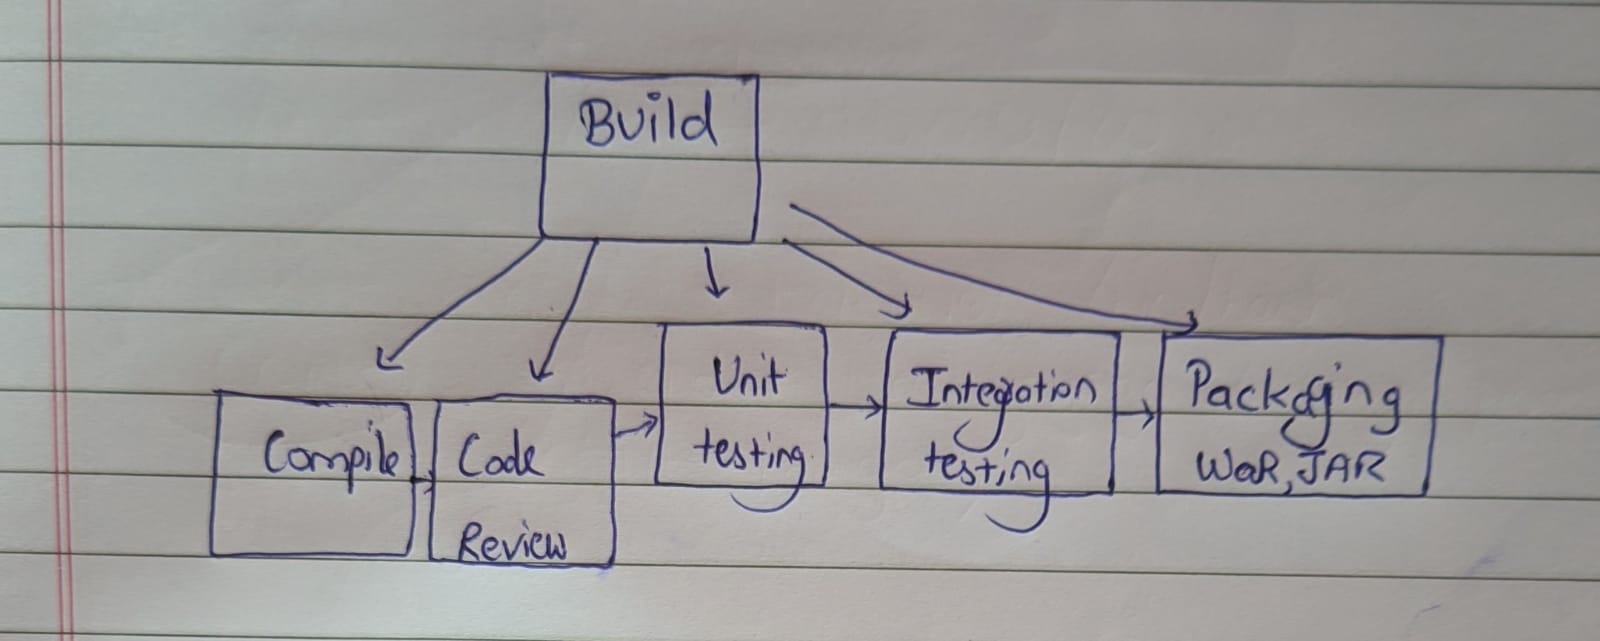 Build
Compile
Code
Review
Unit
testing
Integration
testing
Packaging
WaR, JAR